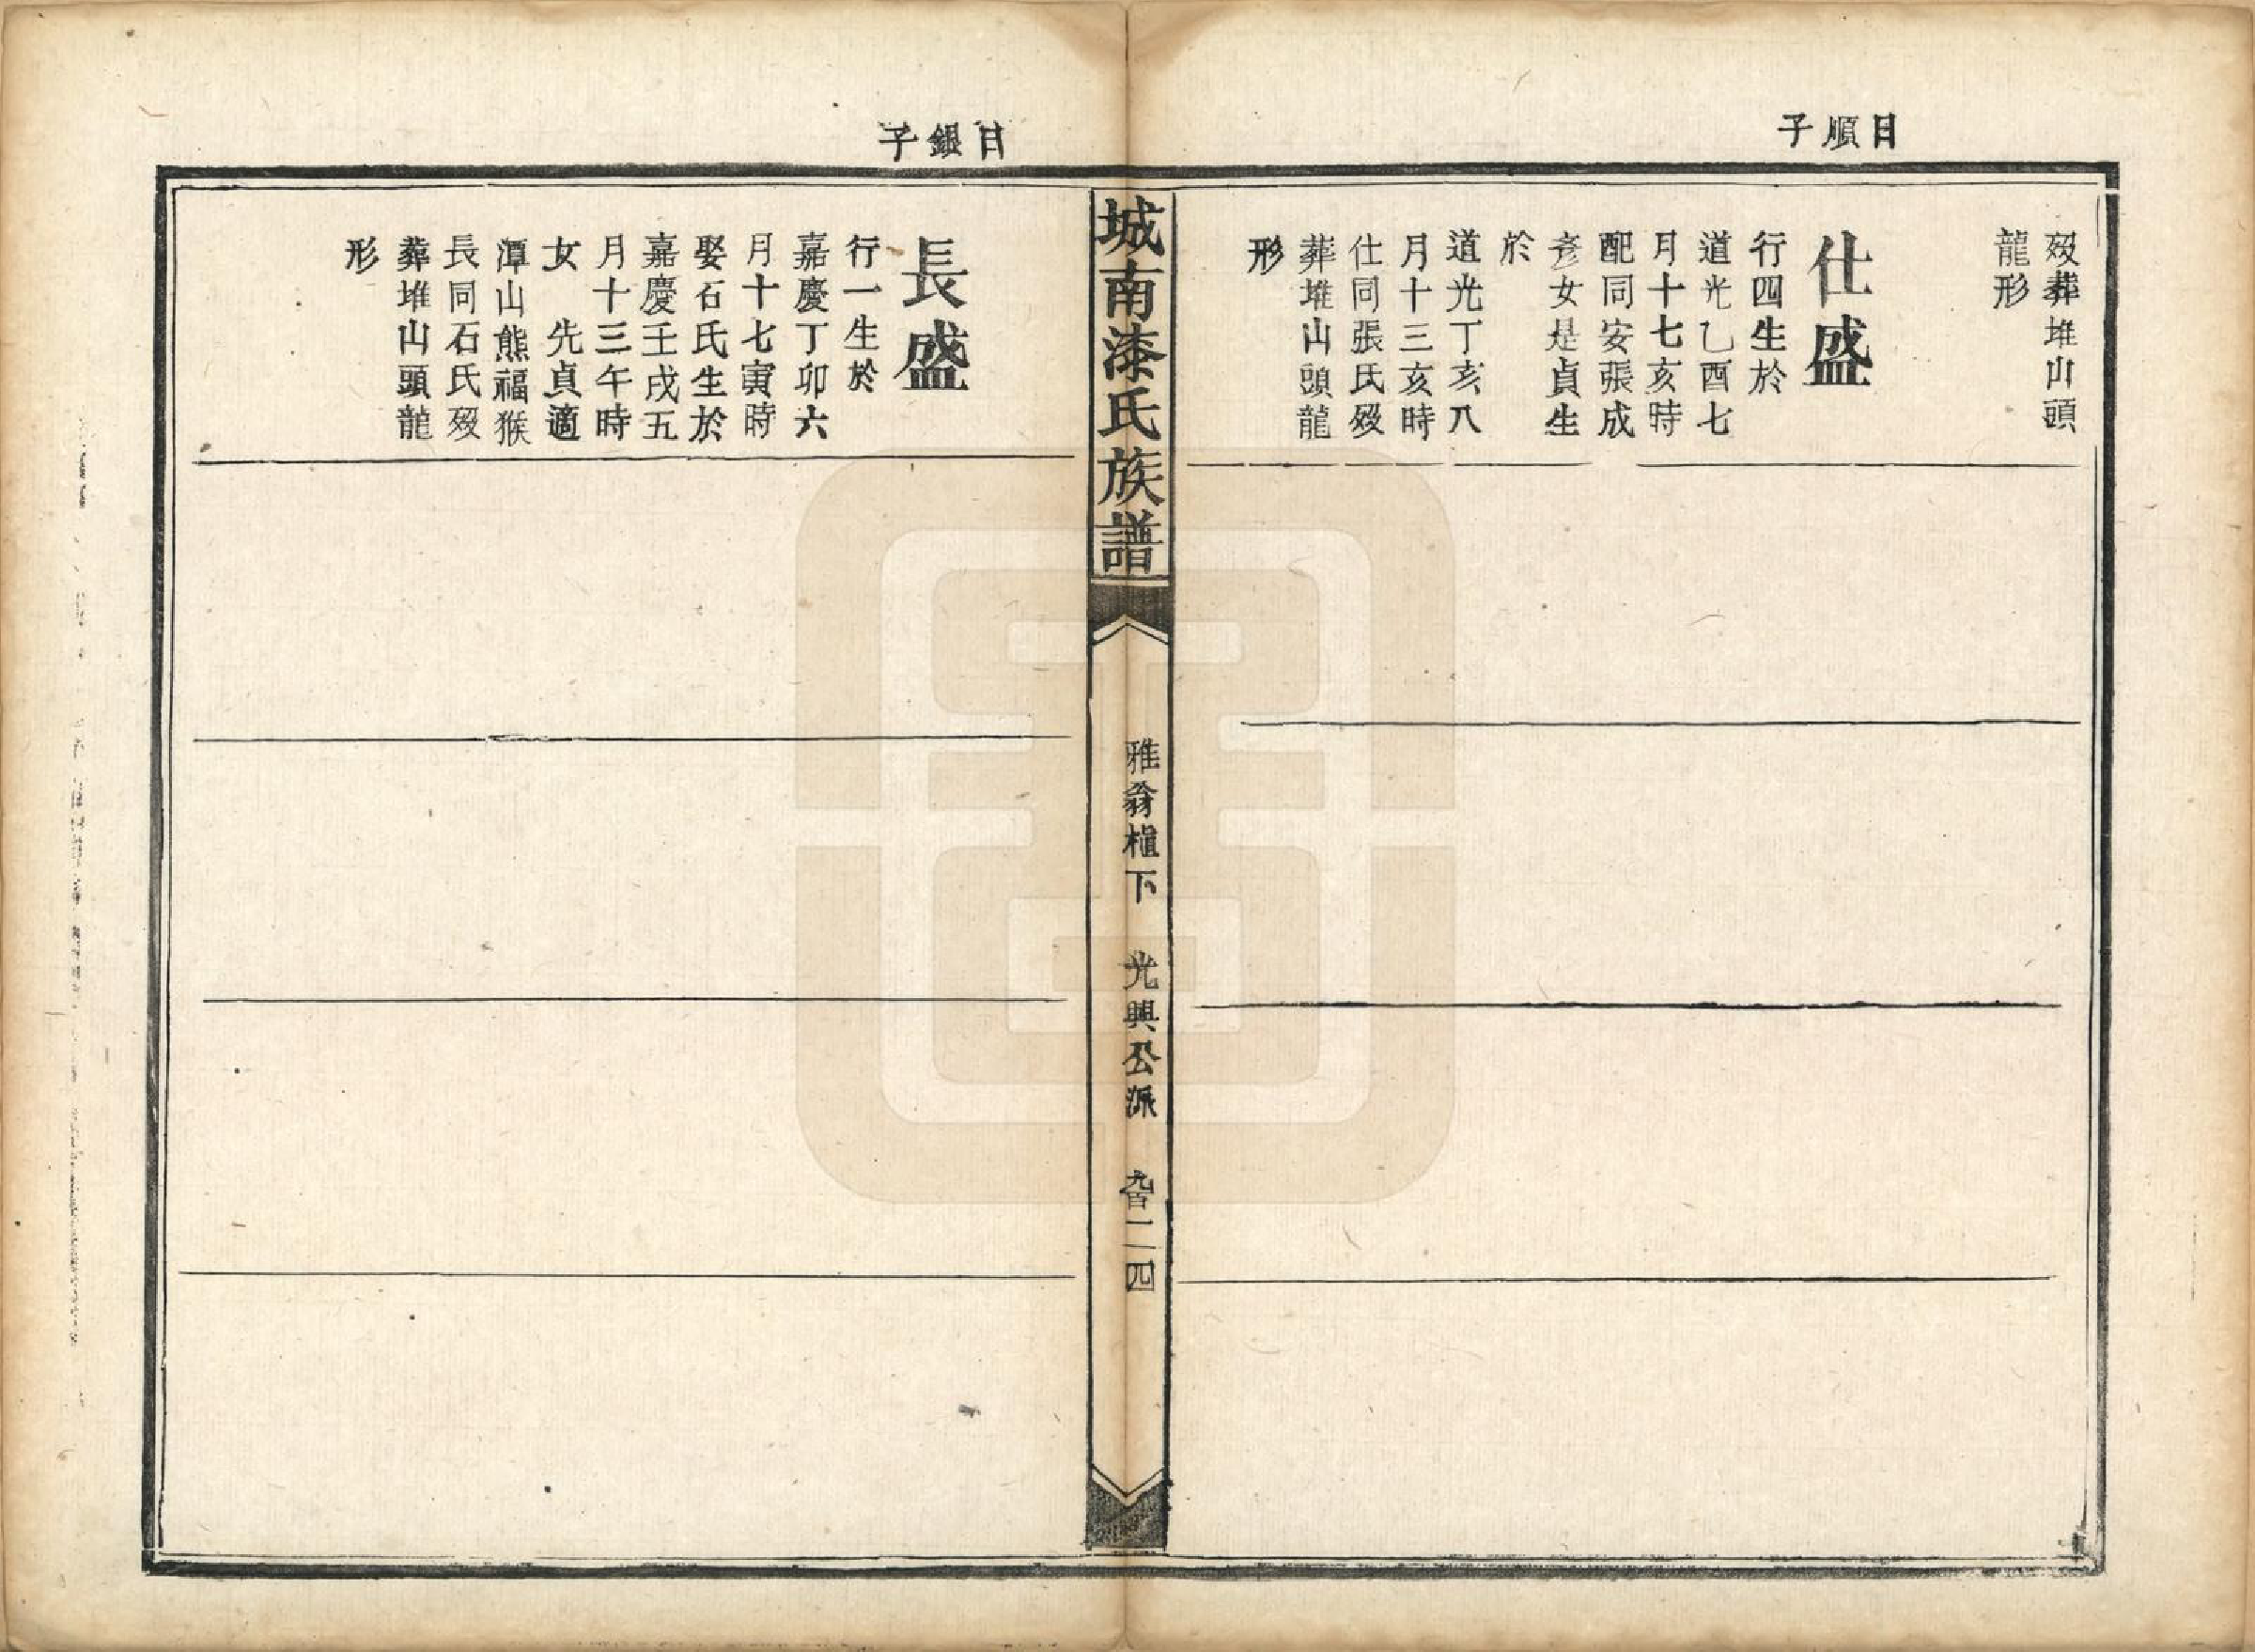 日順子
歿葬堆山頭
龍形
仕盛
行四生於
道光乙酉七
月十七亥時
配同安張成
彥女是貞生
於
道光丁亥八
月十三亥時
仕同張氏歿
葬堆山頭龍
形
城南漆氏族譜
雅翁樞下 光興公派 九百二四
日銀子
長盛
行一生於
嘉慶丁卯六
月十七寅時
娶石氏生於
嘉慶壬戌五
月十三午時
女 先貞適
潭山熊福猴
長同石氏歿
葬堆山頭龍
形